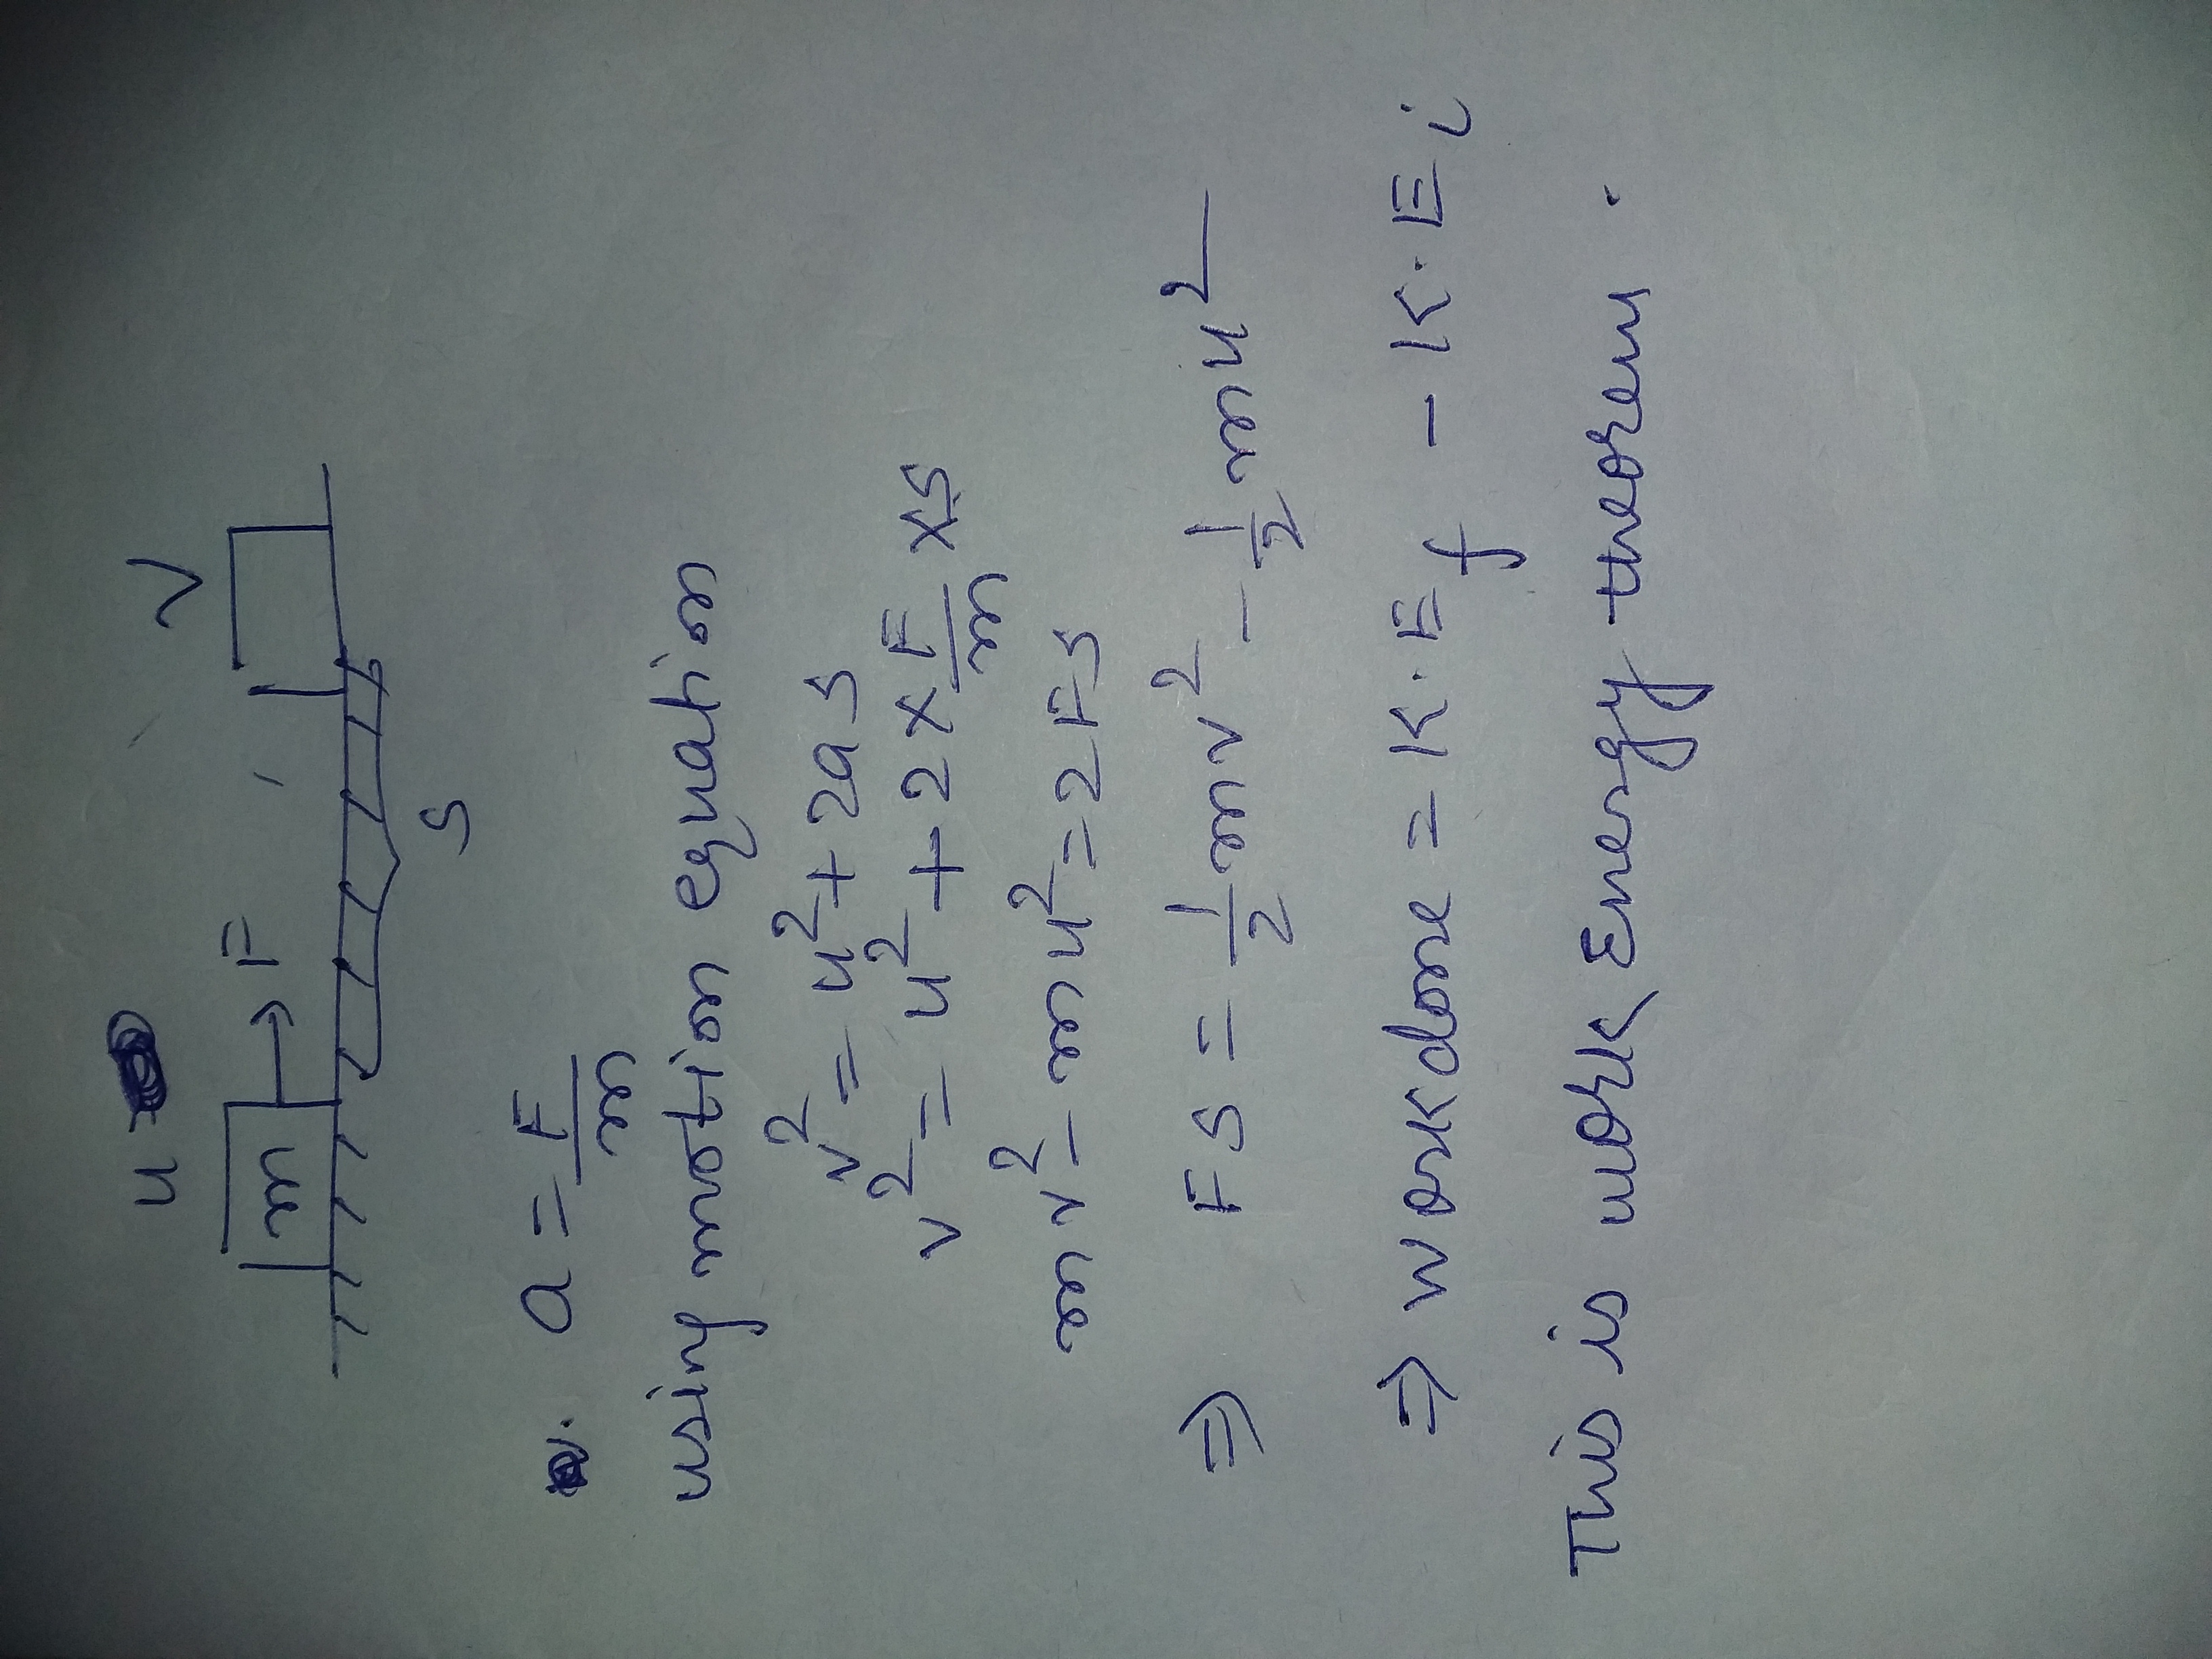 u v
m → F
s
a = F/m
using motion equation
v² = u² + 2as
v² = u² + 2 × F/m × s
mv² - mu² = 2Fs
⇒ Fs = 1/2 mv² - 1/2 mu²
⇒ workdone = K.E f - K.E i
This is work Energy theorem.